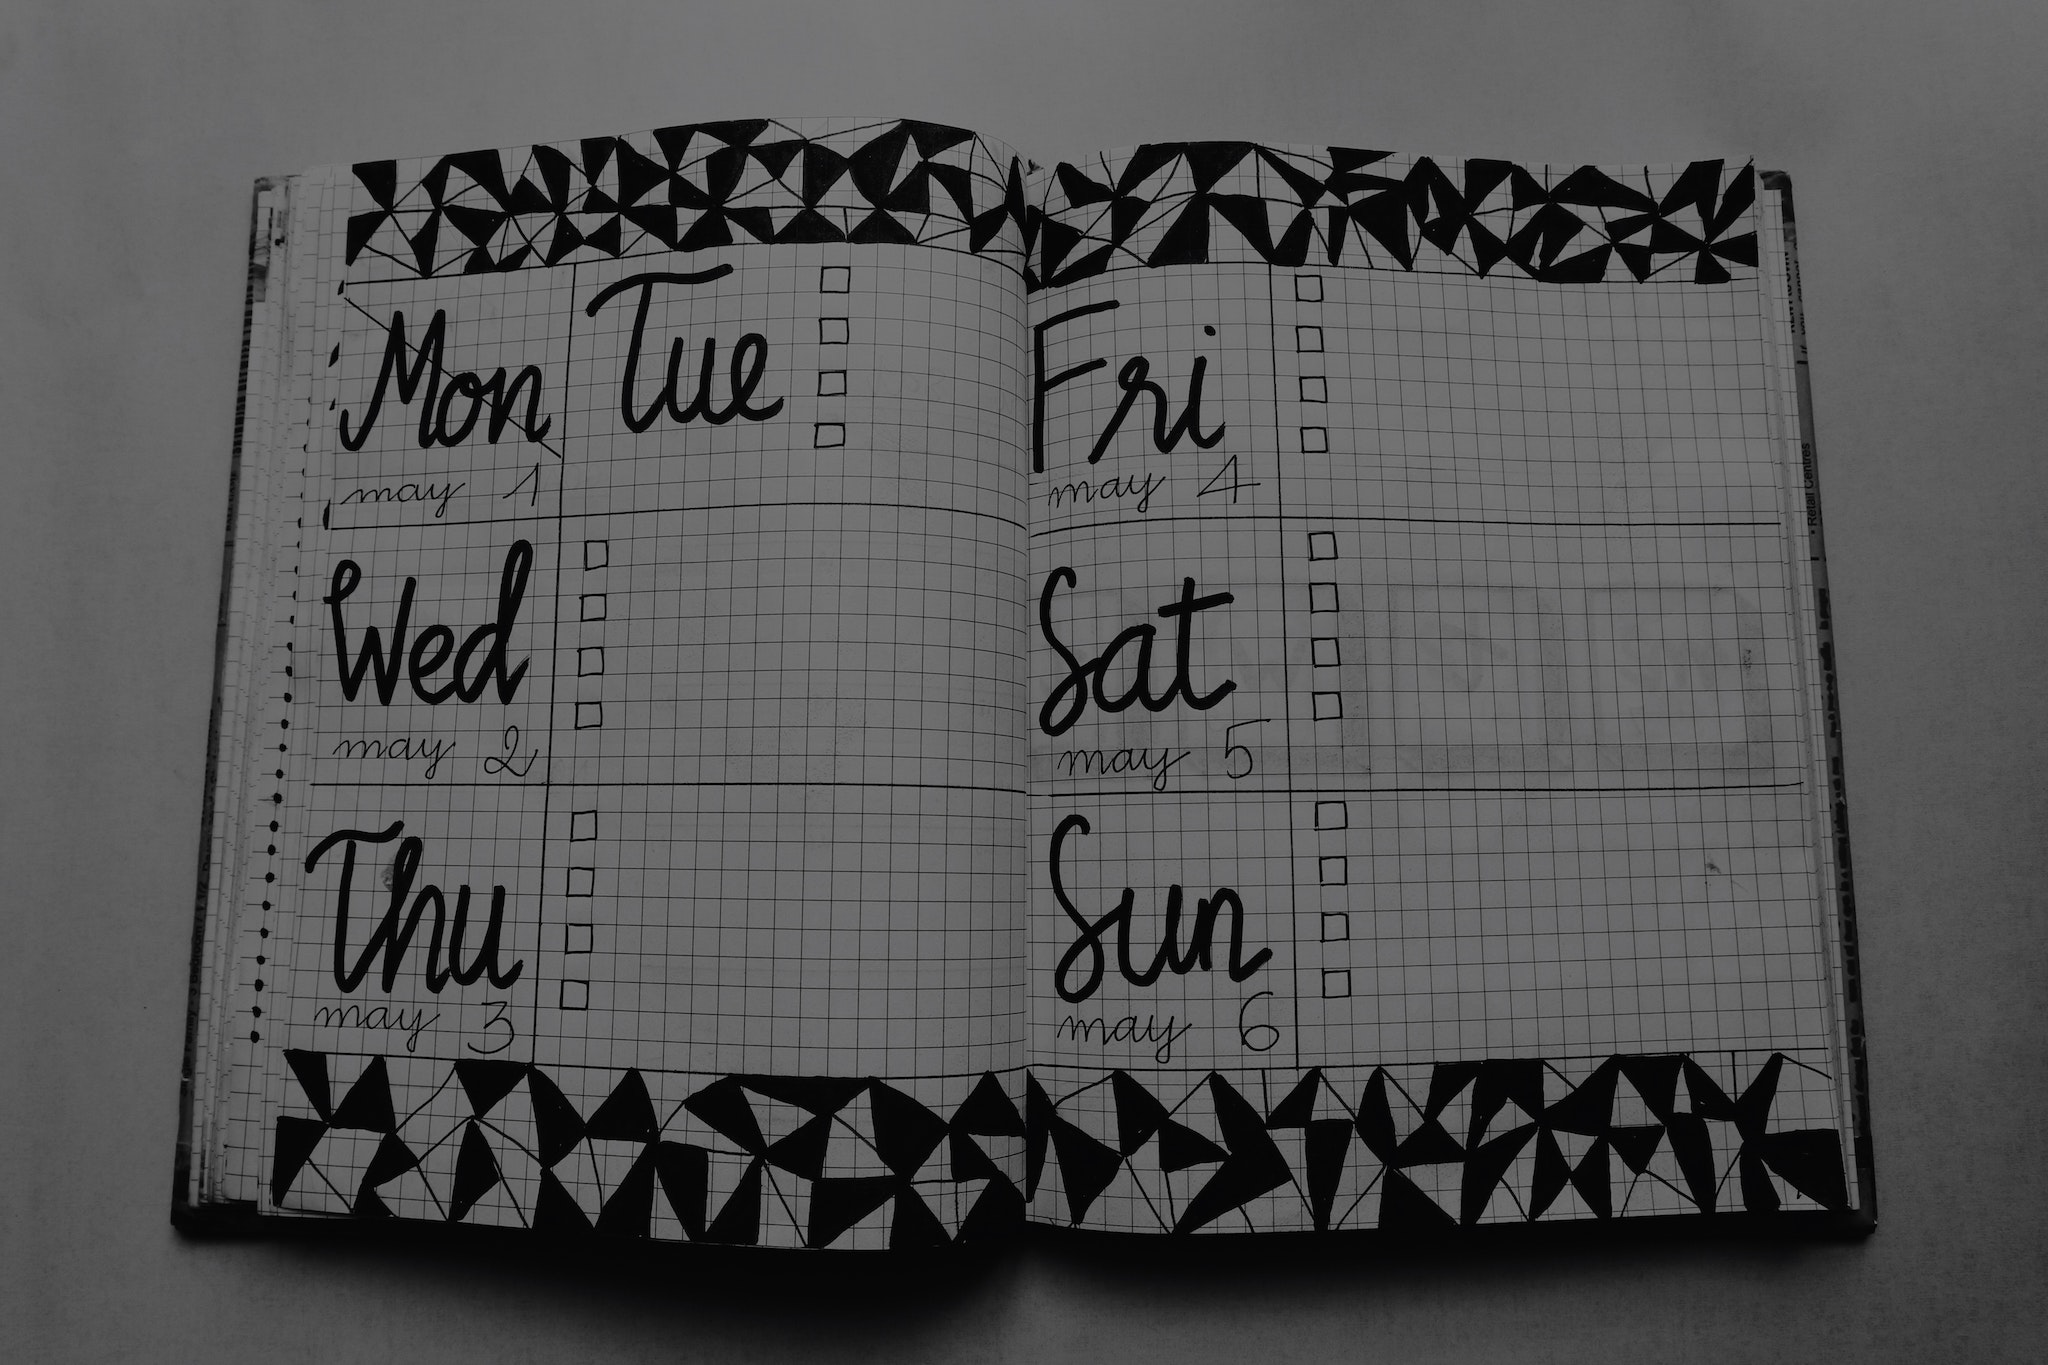 Mon
may 1
Tue
Wed
may 2
Thu
may 3
Fri
may 4
Sat
may 5
Sun
may 6
Retail Centres